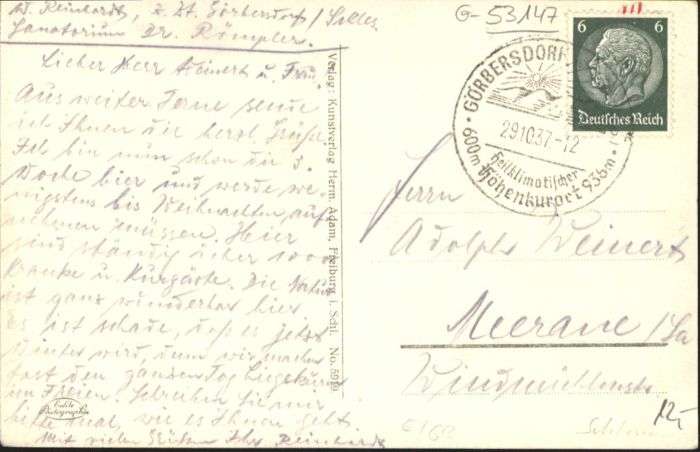 Ad. Reinhardt, z. Zt. Görbersdorf / Schles
Sanatorium Dr. Römpler.
Lieber Herr Weinert u. Frau,
Aus weiter Ferne sende
ich Ihnen die herzl. Grüße.
Ich bin nun schon die 3.
Woche hier und werde we-
nigstens bis Weihnachten aus-
dehnen müssen. Hier
sind ständig über 1000
Kranke u. Kurgäste. Die Natur
ist ganz wunderbar hier.
Es ist schade, daß es jetzt
Winter wird, denn wir machen
fast den ganzen Tag Liegekur
im Freien. Schreiben Sie mir
bitte mal, wie es Ihnen geht.
Mit vielen Grüßen Ihr Reinhardt
Echte
Photographie
Verlag: Kunstverlag Herm. Adam, Freiburg i. Schl. No.
G-53147
6 6
Deutsches Reich
GÖRBERSDORF
29.10.37-12
600m Heilklimatischer 936m
Höhenkurort
Herrn
Adolph Weinert
Meerane / Sa
12,-